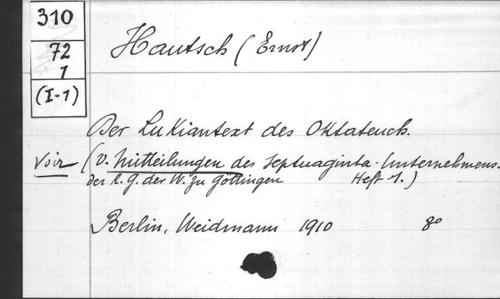 310
72
1
(I-1)
Hautsch (Ernst)
Der Lukiantext des Oktateuch.
Voir (v. Mitteilungen des Septuaginta-Unternehmens.
der K. G. der W. zu Göttingen Heft 1.)
Berlin, Weidmann 1910 8º